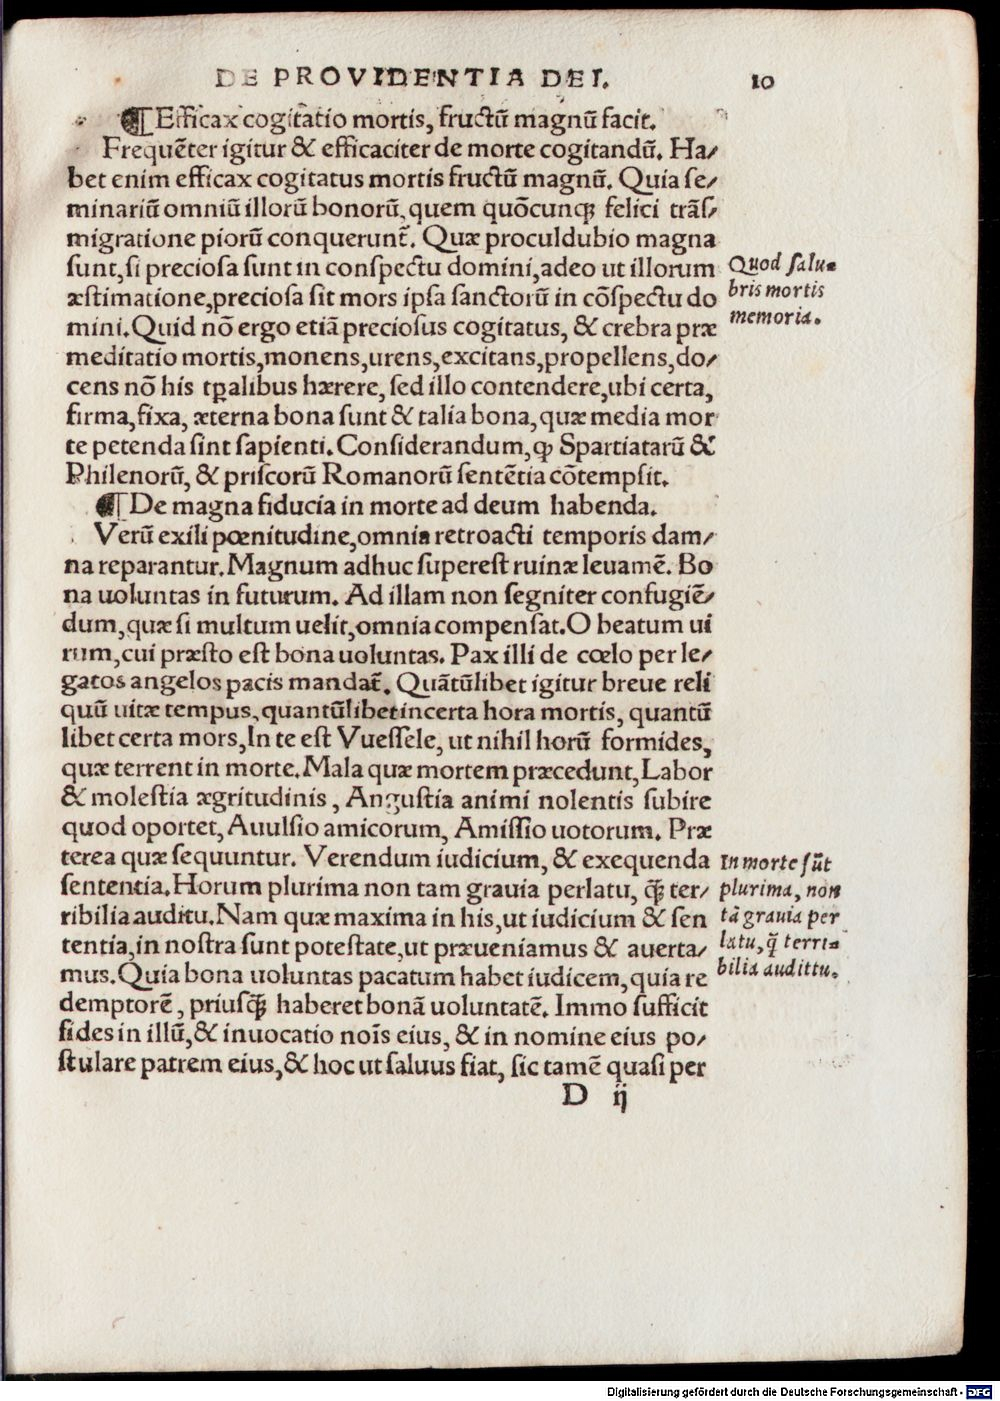 DE PROVIDENTIA DEI. 10
¶ Efficax cogitatio mortis, fructū magnū facit.
Frequēter igitur & efficaciter de morte cogitandū. Ha⸗
bet enim efficax cogitatus mortis fructū magnū. Quia ſe⸗
minariū omniū illorū bonorū, quem quōcunqꝫ felici trāſ⸗
migratione piorū conquerunt̃. Quæ proculdubio magna
ſunt, ſi precioſa ſunt in conſpectu domini, adeo ut illorum
æſtimatione, precioſa ſit mors ipſa ſanctorū in cōſpectu do
mini. Quid nō ergo etiā precioſus cogitatus, & crebra præ
meditatio mortis, monens, urens, excitans, propellens, do⸗
cens nō his tꝑalibus hærere, ſed illo contendere, ubi certa,
firma, fixa, æterna bona ſunt & talia bona, quæ media mor
te petenda ſint ſapienti. Conſiderandum, ꝙ Spartiatarū &
Philenorū, & priſcorū Romanorū ſentētia cōtempſit.
Quod ſalu⸗
bris mortis
memoria.
¶ De magna fiducia in morte ad deum habenda.
Verū exili pœnitudine, omnia retroacti temporis dam⸗
na reparantur. Magnum adhuc ſupereſt ruinæ leuamē. Bo
na uoluntas in futurum. Ad illam non ſegniter confugiē⸗
dum, quæ ſi multum uelit, omnia compenſat. O beatum ui
rum, cui præſto eſt bona uoluntas. Pax illi de cœlo per le⸗
gatos angelos pacis mandat̃. Quātūlibet igitur breue reli
quū uitæ tempus, quantūlibet incerta hora mortis, quantū
libet certa mors, In te eſt Vueſſele, ut nihil horū formides,
quæ terrent in morte. Mala quæ mortem præcedunt, Labor
& moleſtia ægritudinis, Anguſtia animi nolentis ſubire
quod oportet, Auulſio amicorum, Amiſſio uotorum. Præ
terea quæ ſequuntur. Verendum iudicium, & exequenda
ſententia. Horum plurima non tam grauia perlatu, q̄ꝫ ter⸗
ribilia auditu. Nam quæ maxima in his, ut iudicium & ſen
tentia, in noſtra ſunt poteſtate, ut præueniamus & auerta⸗
mus. Quia bona uoluntas pacatum habet iudicem, quia re
demptorē, priuſq̄ꝫ haberet bonā uoluntatē. Immo ſufficit
fides in illū, & inuocatio noīs eius, & in nomine eius po⸗
ſtulare patrem eius, & hoc ut ſaluus fiat, ſic tamē quaſi per
In morte ſūt
plurima, non
tā grauia per
latu, q̄ terri⸗
bilia audittu.
D ij
Digitalisierung gefördert durch die Deutsche Forschungsgemeinschaft - DFG